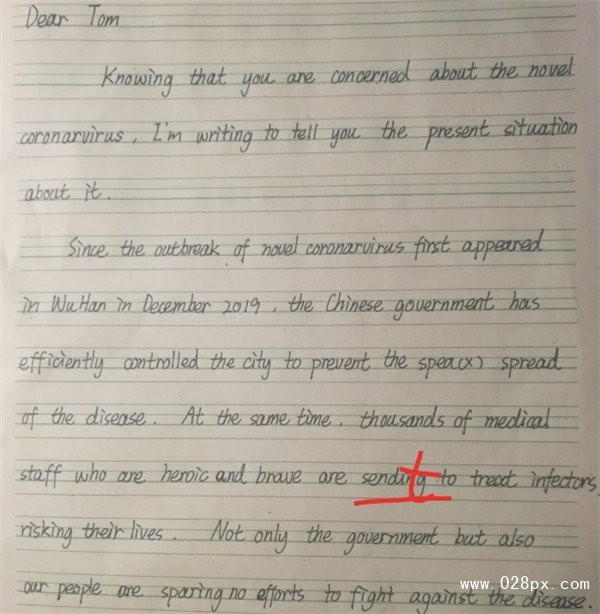 Dear Tom
Knowing that you are concerned about the novel
coronarvirus, I'm writing to tell you the present situation
about it.
Since the outbreak of novel coronarvirus first appeared
in WuHan in December 2019, the Chinese government has
efficiently controlled the city to prevent the spea(x) spread
of the disease. At the same time, thousands of medical
staff who are heroic and brave are sending to treat infectors,
risking their lives. Not only the government but also
our people are sparing no efforts to fight against the disease.
www.028px.com